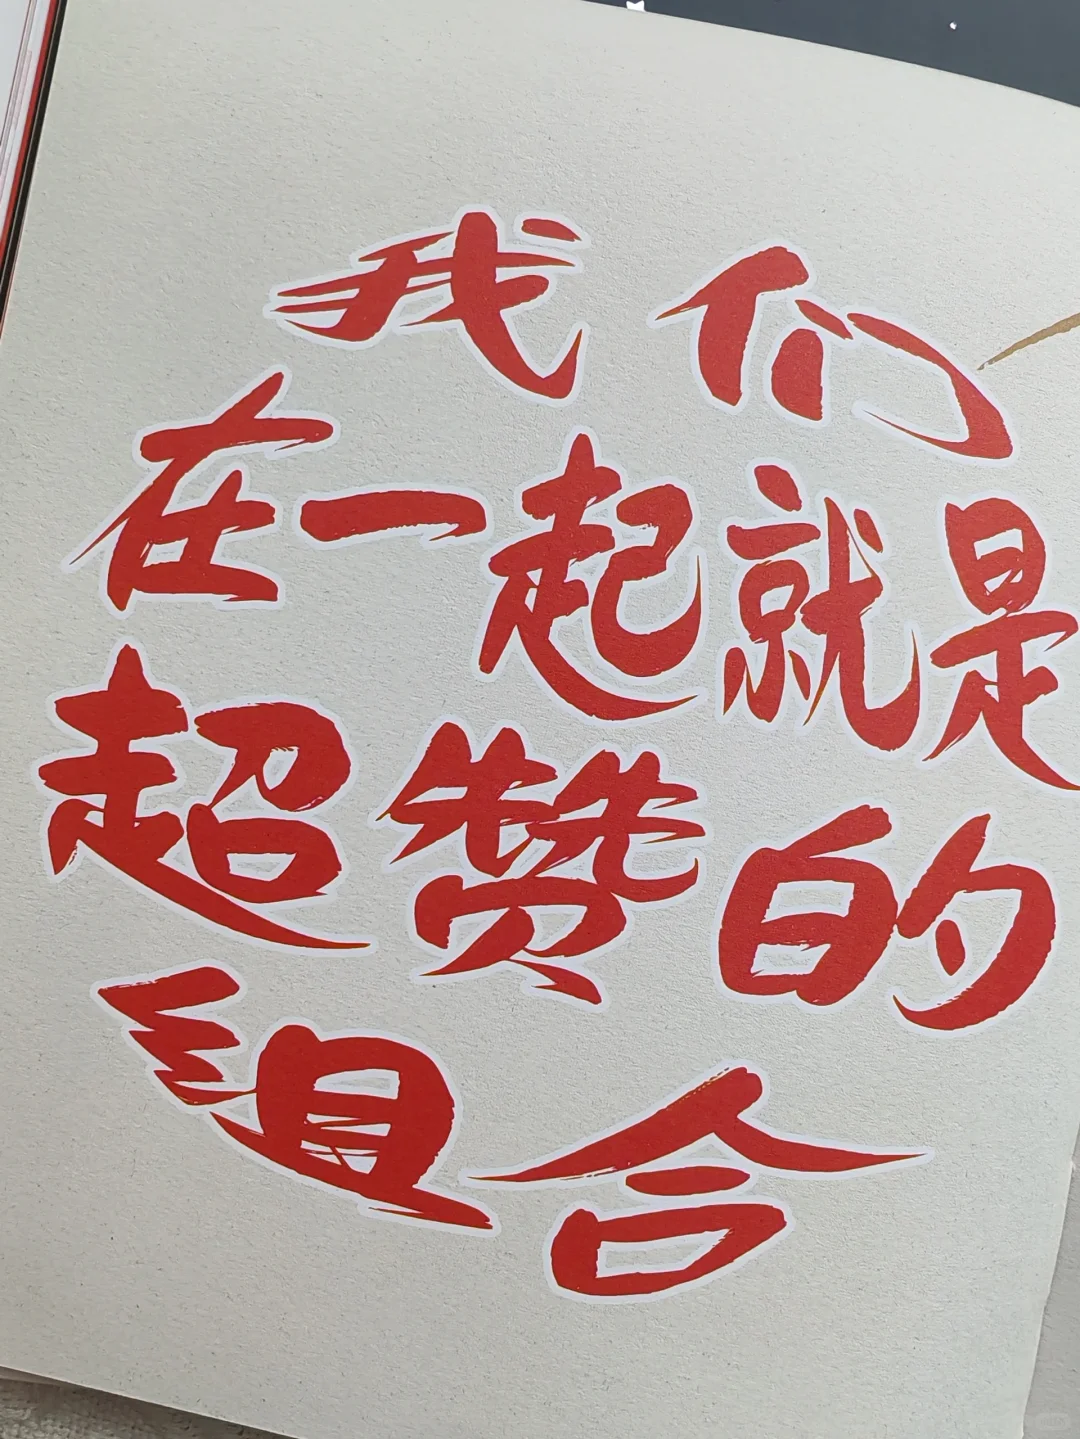 我们
在一起就是
超赞的
组合